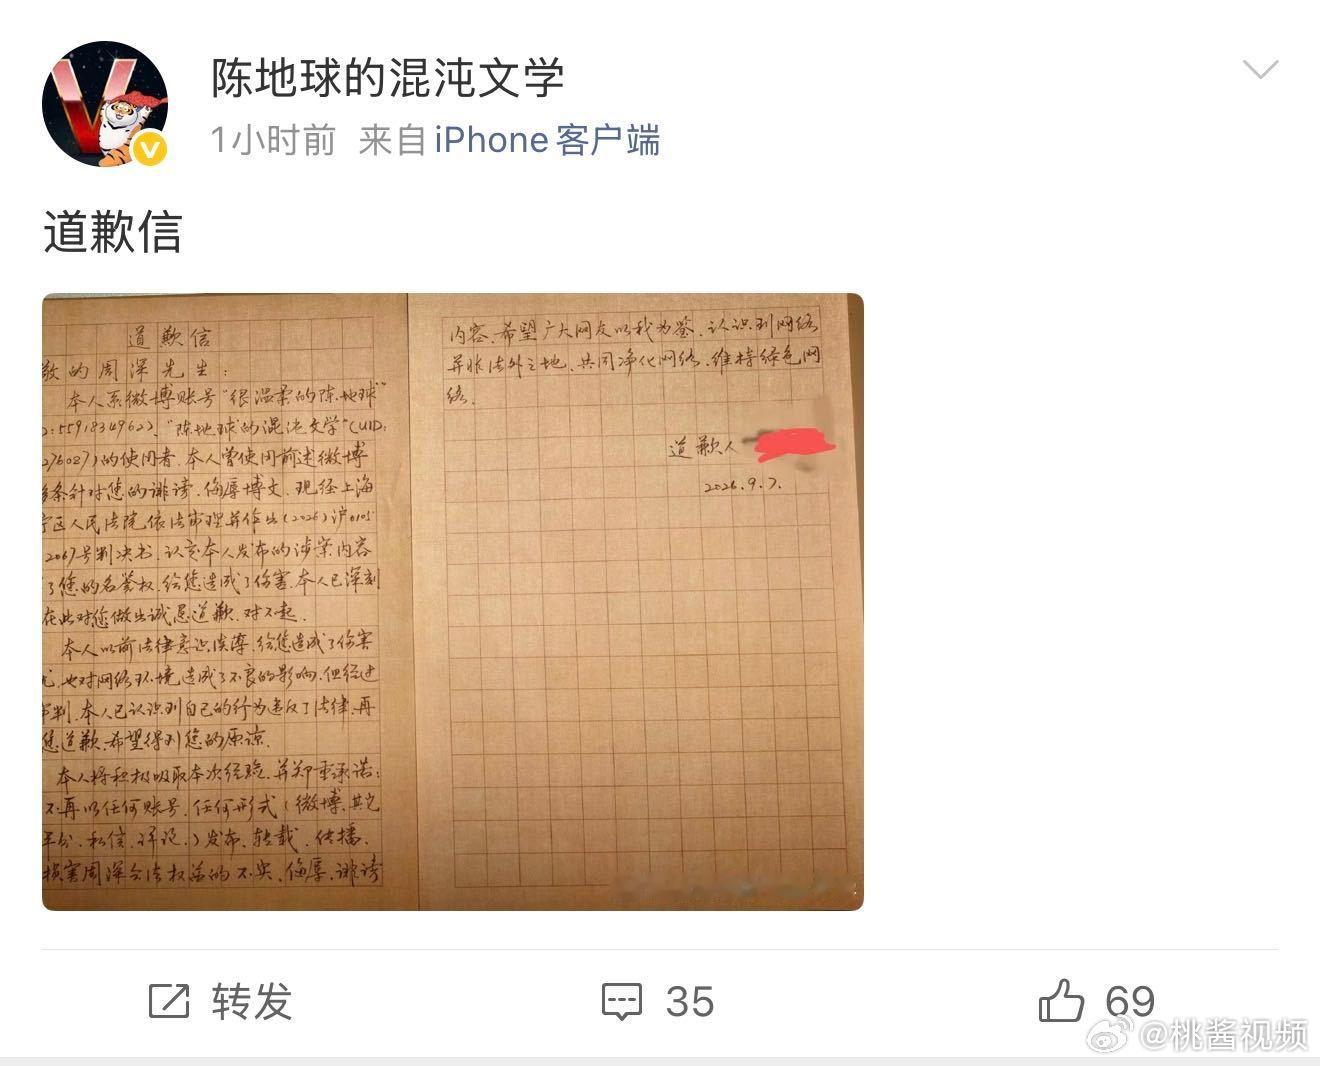 陈地球的混沌文学
1小时前 来自 iPhone客户端
道歉信
道歉信
敬的周深先生：
本人系微博账号“很温柔的陈地球”
:5591834962)、“陈地球的混沌文学”(UID:
276027)的使用者,本人曾使用前述微博
多条针对您的诽谤、侮辱博文,现经上海
宁区人民法院依法审理并作出(2026)沪0105
2067号判决书,认定本人发布的涉案内容
了您的名誉权,给您造成了伤害,本人已深刻
在此对您做出诚恳道歉,对不起.
本人以前法律意识淡薄,给您造成了伤害
也对网络环境造成了不良的影响,但经过
审判,本人已认识到自己的行为违反了法律,再
您道歉,希望得到您的原谅.
本人将积极吸取本次经验,并郑重承诺:
不再以任何账号、任何形式(微博、其它
平台、私信、评论)发布、转载、传播、
损害周深合法权益的不实、侮辱、诽谤
内容,希望广大网友以我为鉴,认识到网络
并非法外之地、共同净化网络,维持绿色网
络.
道歉人
2026.9.7.
转发
35
69
@桃酱视频